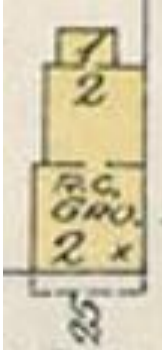 1
2
R.C.
GRO.
2 x
25